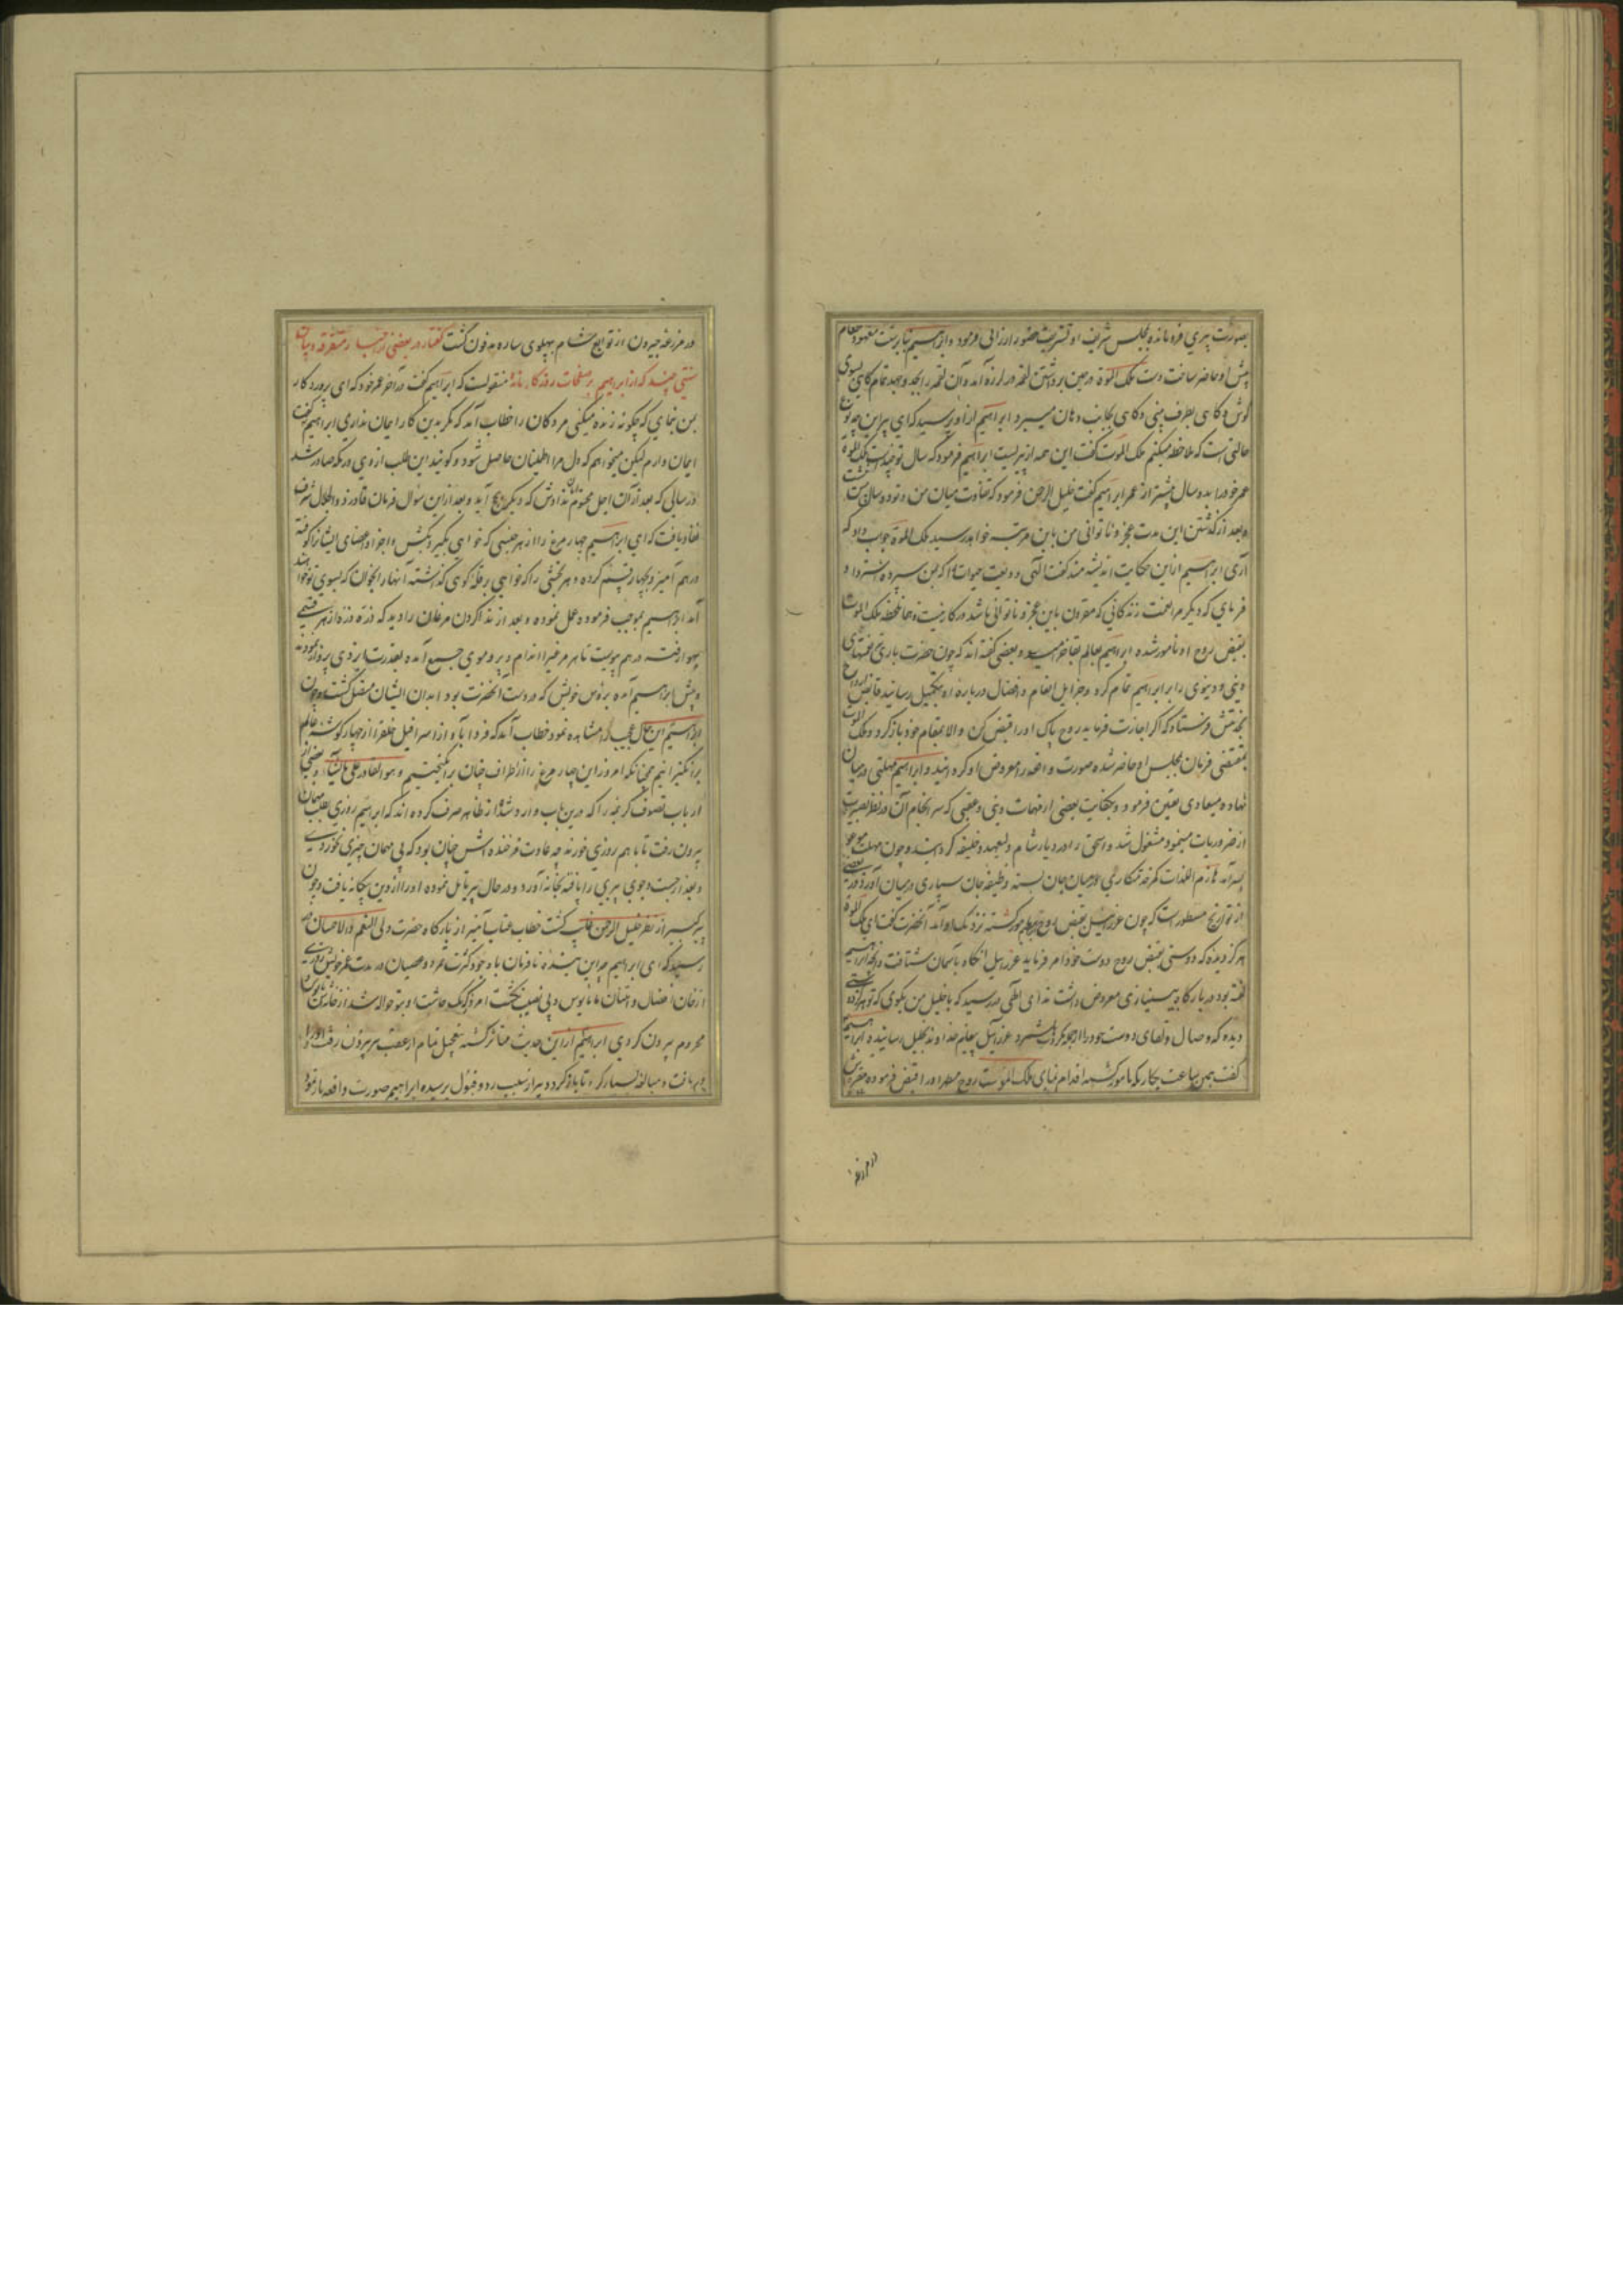 بصورت پیری فرومانده بمجلس شریف او تشریف حضور ارزانی فرمود و ابراهیم بنا بر سنت معهود طعام
پیش او حاضر ساخت دست ملک الموت در حین برداشتن لقمه در لرزه آمد و آن لقمه را بجد و جهد تمام گاهی بسوی
گوش و گاهی بطرف بینی و گاهی بجانب دهان میبرد ابراهیم از او پرسید که ای پیر این چه نوع
حالتی است که ملاحظه میکنم ملک الموت گفت این همه از پیریست ابراهیم فرمود که سال تو چند است ملک الموت
عمر خود را بدو سال بیشتر از عمر ابراهیم گفت خلیل الرحمن فرمود که تفاوت میان من و تو دو سال است
و بعد از گذشتن این مدت عجز و ناتوانی من باین مرتبه خواهد رسید ملک الموت جواب داد که
آری ابراهیم از این حکایت اندیشه مند گفت الهی ودیعت حیات را که بمن سپرده استرداد
فرمای که دیگر مرا رغبت زندگانی که مقرون باین عجز و ناتوانی باشد در کار نیست و همان لحظه ملک الموت
بقبض روح او مامور شده ابراهیم بعالم بقا خرامید و بعضی گفته اند که چون حضرت باری نعمتهای
دینی و دنیوی را بر ابراهیم تمام کرد و جزایل انعام و افضال درباره او بتکمیل رسانید قابض ارواح
بخدمتش فرستاد که اگر اجازت فرماید روح پاک او را قبض کن والا بمقام خود بازگرد و ملک الموت
بمقتضی فرمان بمجلس او حاضر شده صورت واقعه را معروض او گردانید و ابراهیم مهلتی در میان
نهاده میعادی تعیین فرمود و بکفایت بعضی از مهمات دینی و عقبی که سرانجام آن در نظر بصیرت
از ضروریات مینمود مشغول شد و اسحق را در دیار شام ولیعهد و خلیفه گردانید و چون مهلت موعود
بسر آمد هازم اللذات کمر خدمتکاری در میان جان بسته وظیفه جان سپاری در میان آورد و در بعضی
از تواریخ مسطور است که چون عزرائیل بقبض روح مامور گشته نزدیک او آمد آنحضرت گفت ای ملک الموت
هرگز دیدهٔ که دوستی بقبض روح دوست خود امر فرماید عزرائیل آنگاه بآسمان شتافت و آنچه ابراهیم
گفته بود در بارگاه بی نیازی معروض داشت ندای الهی در رسید که با خلیل من بگوی که تو هرگز دوستی
دیدهٔ که وصال و لقای دوست خود را مکروه شمرد عزرائیل پیغام خداوند بخلیل رسانیده ابراهیم
گفت همین ساعت بکاریکه مامور گشتهٔ اقدام نمای ملک الموت روح مطهر او را قبض فرموده
در مزرعه
در مزرعه جیرون از توابع شام بپهلوی ساره مدفون گشت گفتار در بعضی از اخبار متفرقه و بیان
سنتی چند که از ابراهیم بر صفحات روزگار مانده منقولست که ابراهیم گفت در آخر عمر خود که ای پروردگار
بمن بنمای که چگونه زنده میکنی مردگان را خطاب آمد که مگر بدین کار ایمان نداری ابراهیم گفت
ایمان دارم لیکن میخواهم که دل مرا اطمینان حاصل شود و گویند این طلب از وی در مکه صادر شد
در سالی که بعد از آن اجل محتوم امان ندادش که دیگر بحج آید و بعد از این سؤال فرمان قادر ذو الجلال شرف
نفاذ یافت که ای ابراهیم چهار مرغ را از هر جنسی که خواهی بگیر و بکش و اجزا و اعضای ایشانرا کوفته
در هم آمیز و بچهار قسم کرده و هر بخشی را که خواهی بر قلهٔ کوهی گذاشته آنها را بخوان که بسوی تو خواهند
آمد ابراهیم بموجب فرموده عمل نموده و بعد از ندا کردن مرغان را دید که ذره ذره از هر قسمی
بهوا رفته در هم پیوست تا هر مرغی را اندام و پر و موی جمع آمده بقدرت ایزدی پرواز نموده
و پیش ابراهیم آمده برؤس خویش که در دست آنحضرت بود ابدان ایشان متصل گشت و چون
ابراهیم این حال عجیب را مشاهده نمود خطاب آمد که فردا بآواز اسرافیل خلق را از چهار گوشه عالم
برانگیزانیم همچنانکه امروز این چهار مرغ را از اطراف جهان برانگیختیم و هو القادر علی ما یشاء و بعضی از
ارباب تصوف گریه را که درین باب وارد شده از ظاهر صرف کرده اند که ابراهیم روزی بطلب مهمان
بیرون رفت تا با هم روزی خورند چه عادت فرخنده اش چنان بود که بی مهمان چیزی نخوردی
و بعد از جست و جوی پیری را یافته بخانه آورد و در حال پیر تأمل نموده او را از دین بیگانه یافت و چون
پیر کبیر از نظر خلیل الرحمن غایب گشت خطاب عتاب آمیز از بارگاه حضرت ولی النعم والاحسان
رسید که ای ابراهیم چرا این بنده نافرمان با وجود کثرت تمرد و عصیان در مدت عمر خویش روزی
از خوان افضال و امتنان ما مایوس و بی نصیب نگشت امروز که یک چاشت او بتو حواله شد از خانه اش مایوس
محروم بیرون کردی ابراهیم از این حدیث متأثر گشته بتعجیل تمام از عقب پیر بیرون رفت و او را
دریافت و مبالغه بسیار کرد تا بازگردد پیر از سبب رد و قبول پرسیده ابراهیم صورت واقعه باز نمود